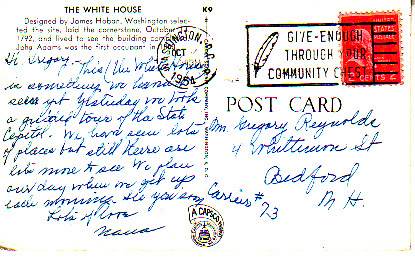 THE WHITE HOUSE
Designed by James Hoban, Washington selec-
ted the site, laid the cornerstone, October
1792, and lived to see the building comp
John Adams was the first occupant in
K9
WASHINGTON, D.C.
OCT
1954
GIVE-ENOUGH
THROUGH YOUR
COMMUNITY CHEST
UNITED STATES POSTAGE
POST CARD
Gregory Reynolds
4 Whittimon St
Bedford
N H.
Carrier #
73
Hi Gregory-
This (the White House)
is something we haven't
seen yet Yesterday we took
a guided tour of the State
Capitol. We have seen lots
of places but still there are
lots more to see We plan
our day when we get up
each morning. See you soon
Lots of love
Nana
A CAPSCO